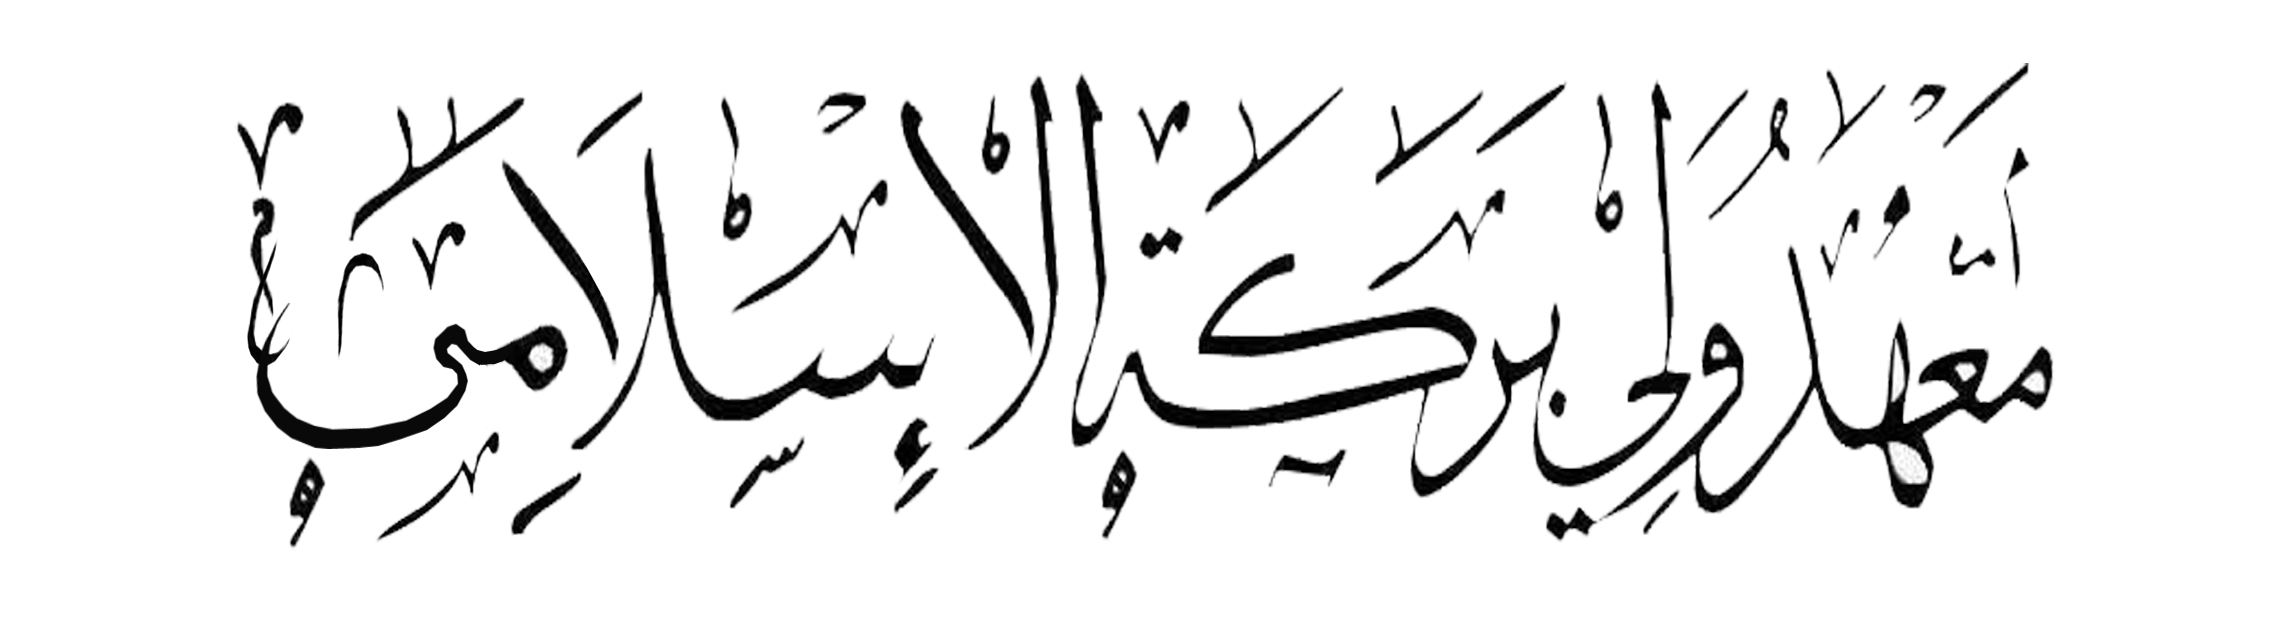 معهد ولي بركة الإسلامي